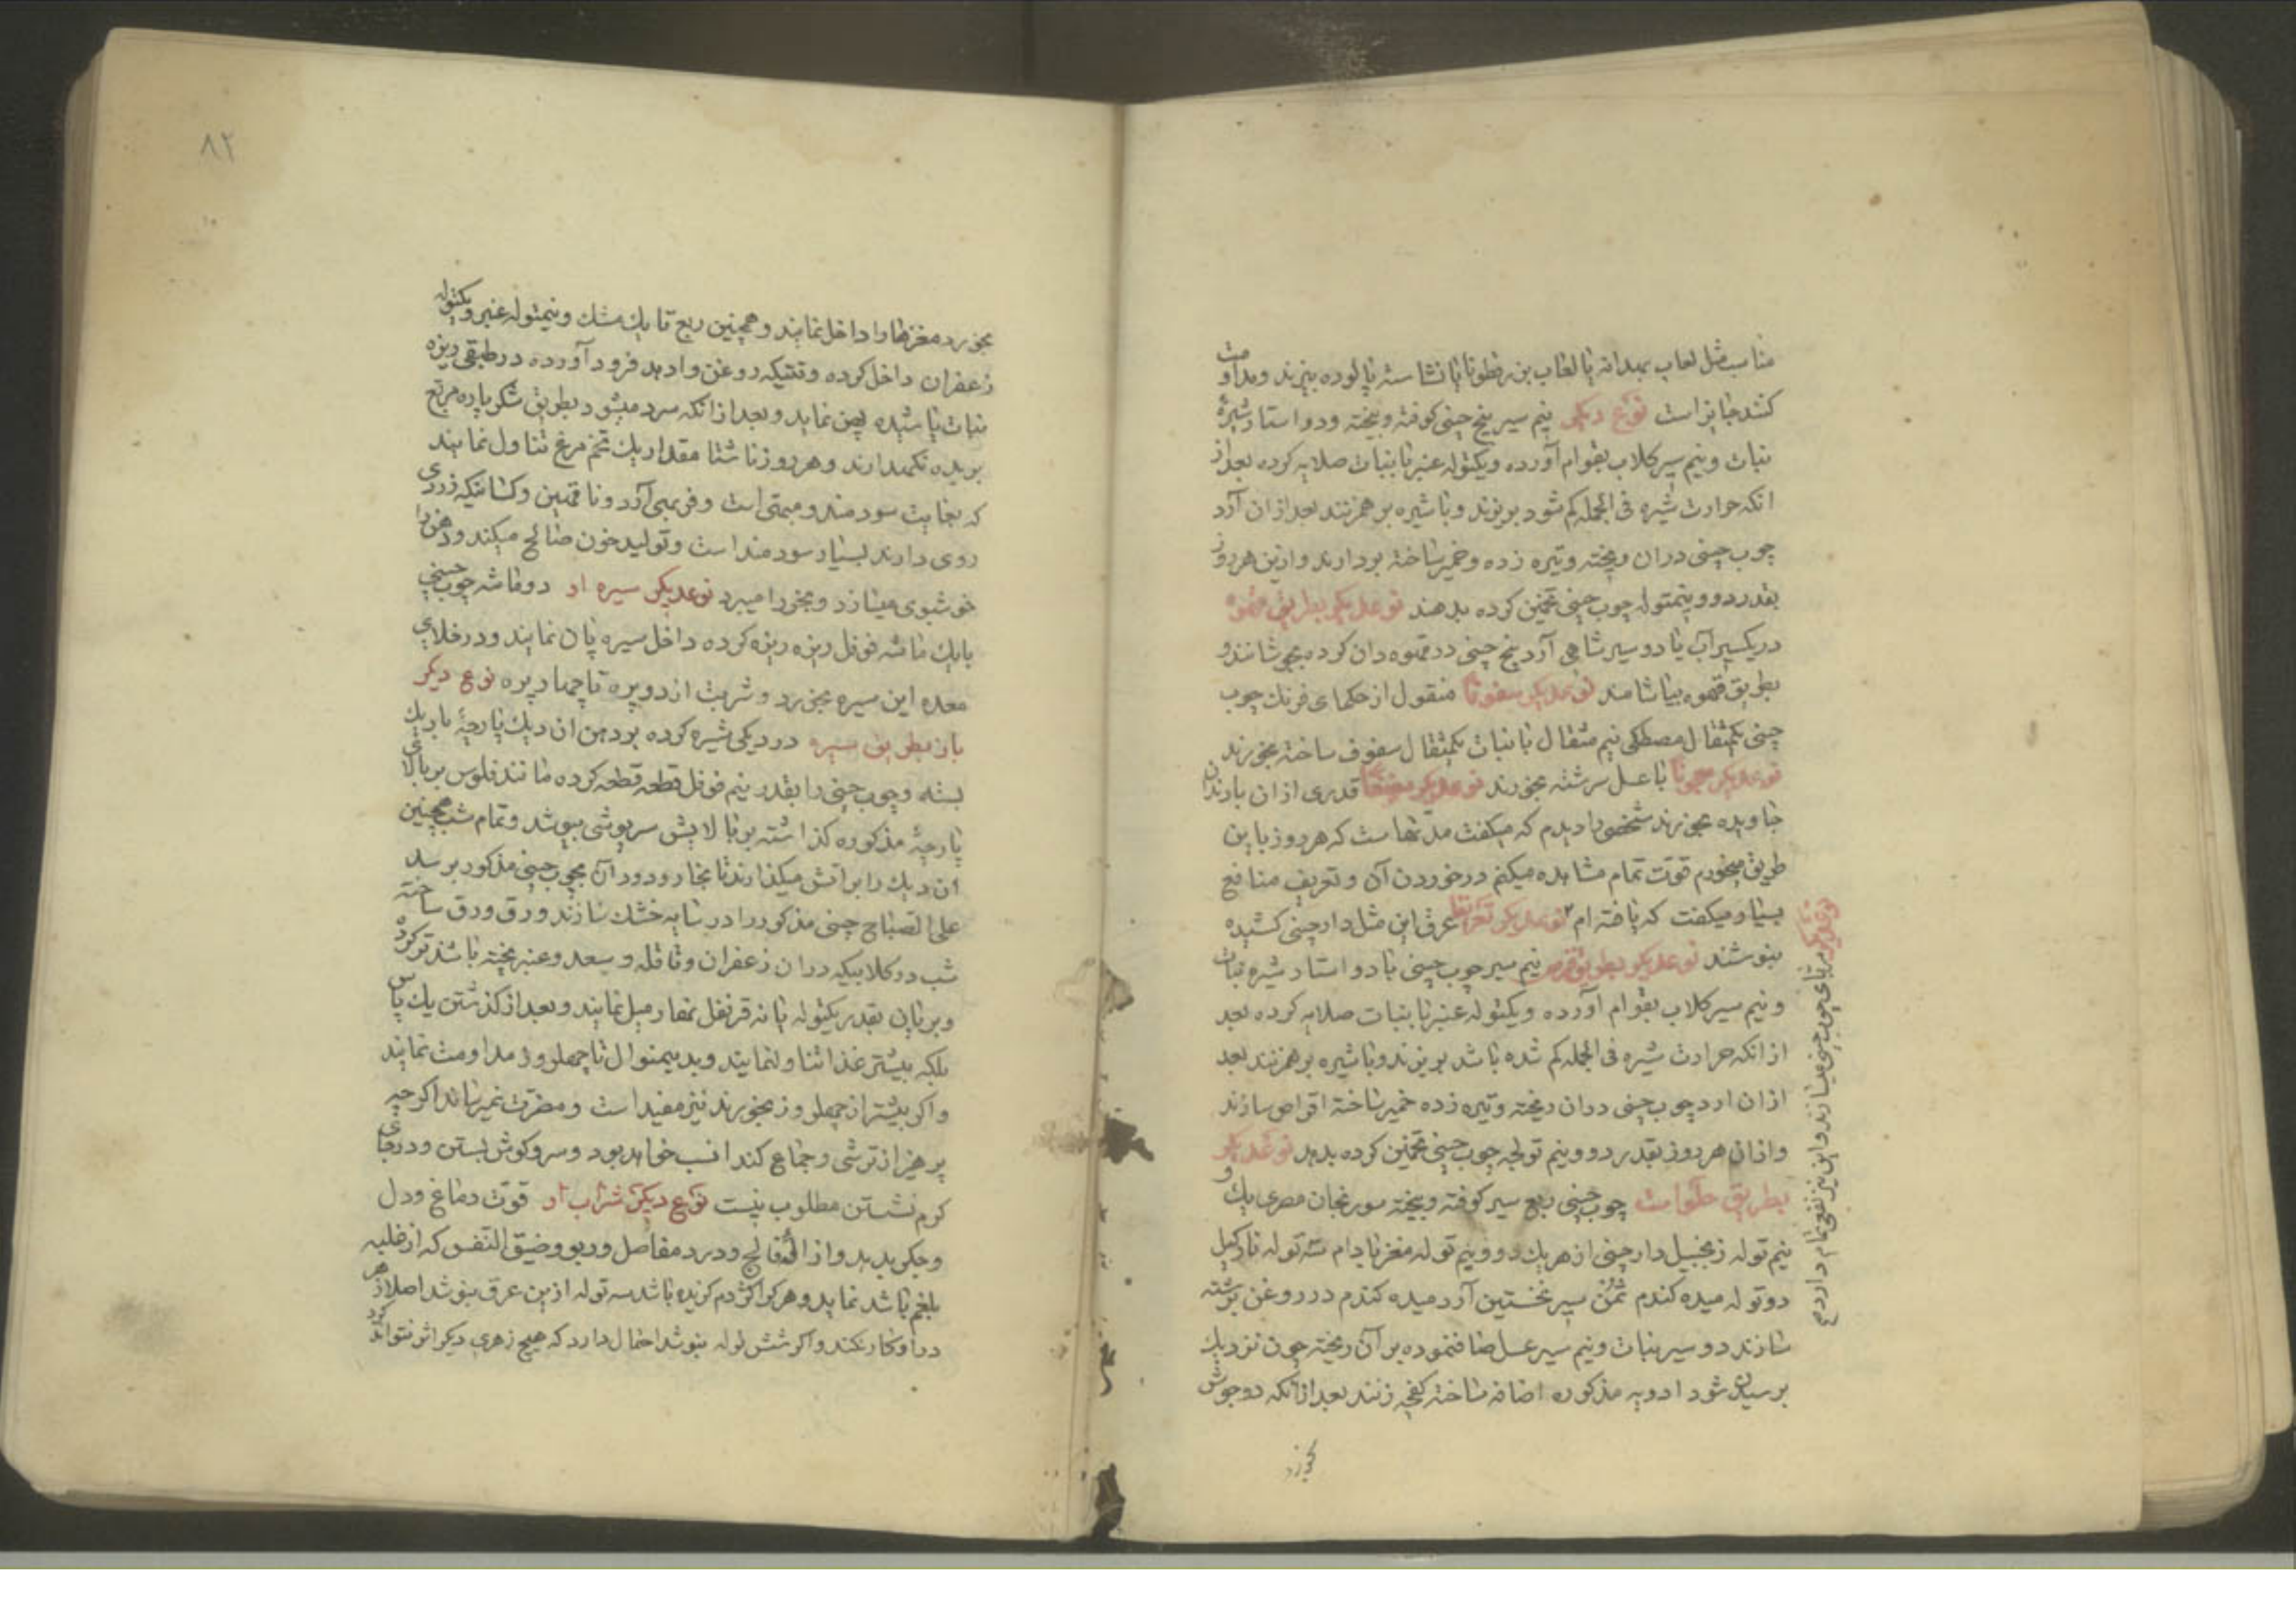 مناسب مثل لعاب بهدانه یا لعاب بزرقطونا یا نشاسته پالوده بپزند ومداومت
کنند جایز است نوع دیکر نیم سیر بیخ چینی کوفته وبیخته ودو استار شیرهٔ
نبات ونیم سیر کلاب بقوام آورده ویکتوله عنبر با نبات صلایه کرده بعد از
انکه حرارت شیره فی الجمله کم شود بریزند وبا شیره برهم زنند بعد ازان آرد
چوب چینی دران ریخته وتیره زده وخمیر ساخته بردارند وازین هر روز
بقدر دو ونیمتوله چوب چینی تخمین کرده بدهند نوعدیکر بطریق قهوه
دریکسیر آب یا دو سیر شاهی آرد بیخ چینی در قهوه دان کرده بجوشانند و
بطریق قهوه بیاشامند نوعدیکر سفوفا منقول از حکمای فرنك چوب
چینی یکمثقال مصطکی نیم مثقال با نبات یکمثقال سفوف ساخته بخورند
نوعدیکر معجونا با عسل سرشته بخورند نوعدیکر مضغا قدری ازان بارندان
خاویده بخورند شخصی را دیدم که میکفت مدتهاست که هر روز باین
طریق میخورم قوّت تمام مشاهده میکنم در خوردن آن وتعریف منافع
بسیار میکفت که یافته ام نوعدیکر تعرقا عرق این مثل دارچینی کشیده
بنوشند نوعدیکر بطریق قرص نیم سیر چوب چینی با دو استار شیره نبات
ونیم سیر کلاب بقوام آورده ویکتوله عنبر با نبات صلایه کرده بعد
از انکه حرارت شیره فی الجمله کم شده باشد بریزند وبا شیره برهم زنند بعد
ازان ارد چوب چینی دران ریخته وتیره زده خمیر ساخته اقراص سازند
وازان هر روز بقدر دو ونیم تولچه چوب چینی تخمین کرده بدهد نوعدیکر
بطریق حلواست چوب چینی ربع سیر کوفته وبیخته سورنجان مصری یك و
نیم توله زنجبیل دارچینی از هر یك دو ونیم توله مغز بادام سه توله نارکیل
دو توله میده کندم ثمن سیر نخستین آرد میده کندم در روغن برشته
سازند دو سیر نبات ونیم سیر عسل صاف نموده بر آن ریخته چون نزدیك
برسیدن شود ادویه مذکوره اضافه ساخته کفچه زنند بعد ازانکه دو جوش
بخورد
نوعدیکر مربای چوب چینی میسازند واین نیز نفعی تمام دارد
۸۲
بخورد مغزها را داخل نمایند وهمچنین ربع تا یك مشك ونیمتوله عنبر ویکتوله
زعفران داخل کرده وقتیکه روغن وادهد فرود آورده در طبقی ریزه
نبات پاشیده پهن نماید وبعد از انکه سرد میشود بطریق شکرپاره مربع
بریده نکهدارند وهر روز ناشتا مقدار یك تخم مرغ تناول نمایند
که بغایت سودمند ومبهی است وفربهی آرد وناقهین وکسانیکه زردی
روی دارند بسیار سودمند است وتولید خون صالح میکند ودهن را
خوشبوی میسازد وبخر را میبرد نوعدیکر سیره او دو ماشه چوب چینی
با یك ماشه فوفل ریزه ریزه کرده داخل سیره پان نمایند ودر خلای
معده این سیره بخورد وشربت از دو پره تا چهار پره نوع دیکر
بازبطریق سیره در دیکی شیره کرده بر دهن ان دیك پارچهٔ باریك
بسته وچوب چینی را بقدر نیم فوفل قطعه قطعه کرده مانند فلوس بر بالای
پارچهٔ مذکوره کذاشته بر بالایش سرپوشی بپوشد وتمام شب همچنین
ان دیك را بر آتش میکذارند تا بخار ودود آن بچوب چینی مذکور برسد
علی الصباح چینی مذکور را در سایه خشك سازند وورق ورق ساخته
شب در کلابیکه دران زعفران وقاقله وسعد وعنبر پخته باشد تر کرده
وبر پان بقدر یکتوله با نه قرنفل نهار میل نمایند وبعد از کذشتن یك پاس
بلکه بیشتر غذا تناول نمایند وبدیمنوال تا چهلروز مداومت نمایند
واکر بیشتر از چهلروز بخورند نیز مفید است ومضرت نمیرساند اکرچه
پرهیز از ترشی وجماع کند انسب خواهد بود وسر وکوش بستن ودرجای
کرم نشستن مطلوب نیست نوع دیکر شراب او قوّت دماغ ودل
وجکر بدهد وازالهٔ فالج ودرد مفاصل وربو وضیق النفس که از غلبه
بلغم باشد نماید وهر کرا کژدم کزیده باشد سه توله ازین عرق بنوشد اصلا زهر
دراو کار نکند واکر شش توله بنوشد احتمال دارد که هیچ زهری دیکر اثر نتواند کرد